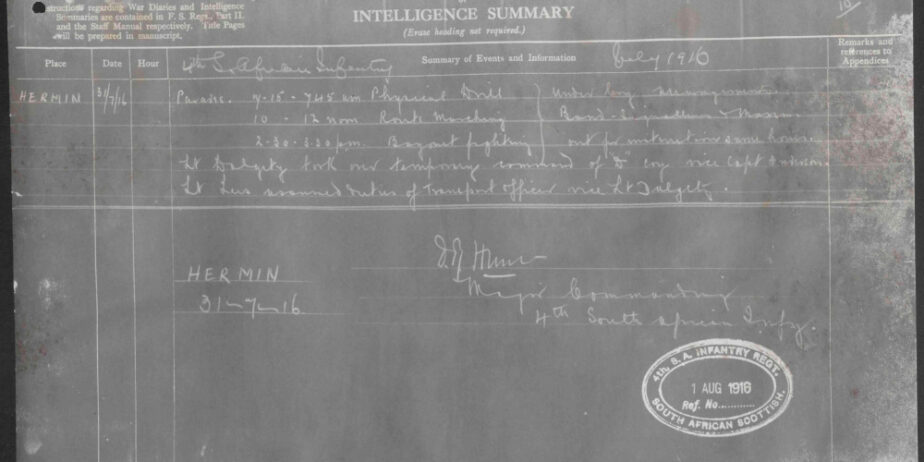 Instructions regarding War Diaries and Intelligence
Summaries are contained in F. S. Regs., Part II.
and the Staff Manual respectively. Title Pages
will be prepared in manuscript.
INTELLIGENCE SUMMARY
(Erase heading not required.)
10
Place Date Hour Summary of Events and Information Remarks and references to Appendices
4th S. African Infantry July 1916
HERMIN 31/7/16 Parades. 7-15 - 7.45 am Physical Drill Under Coy arrangements
10 - 12 noon Route Marching Band - Signallers &
2-30 - 3.30 pm. Bayonet fighting out for instruction same hours
Lt Dalgety took over temporary command of "D" coy vice Capt
Lt assumed duties of Transport Officer vice Lt Dalgety.
HERMIN
31-7-16
Major Commanding
4th South African Infy.
4th. S. A. INFANTRY REGT.
1 AUG 1916
Ref. No............
SOUTH AFRICAN SCOTTISH.